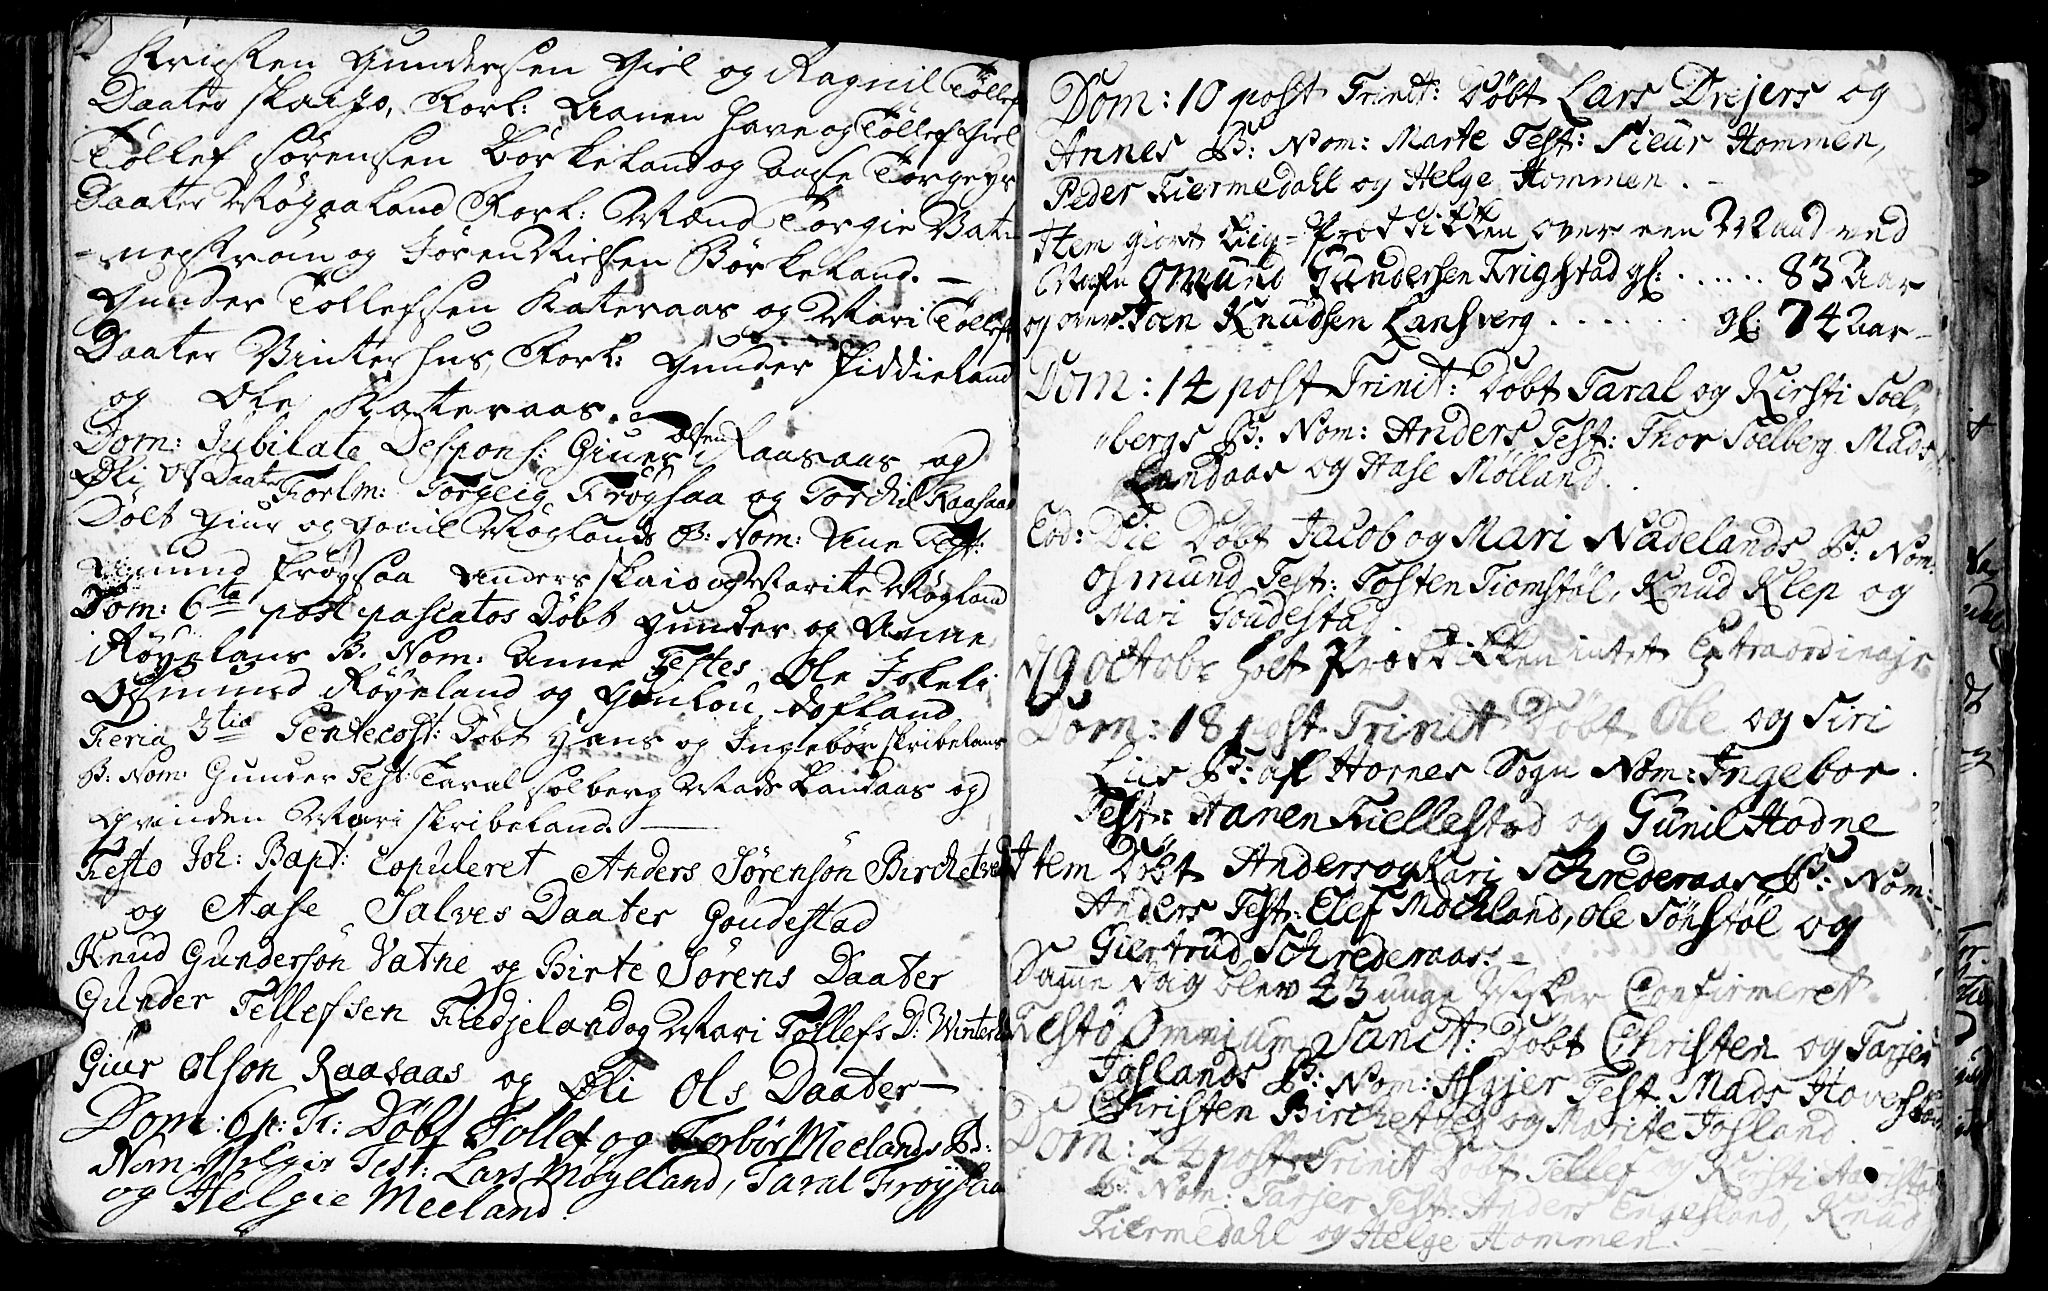 Kristen Gundersen Giel og Ragnil Tollefs
Daater Skaijo, Forl: Aanen Have og Tollef Giel
Tollef Sørensen Børkeland og Aase Torgeys
Daater Møgaaland Forl: Mænd Torgie Vat-
-nestrøm og Sören Nielsen Börkeland. —
Gunder Tollefsen Kateraas og Mari Tollefs
Daater Vinterhus, Forl: Gunder Fiddieland
og Ole Kateraas.
Dom: Jubilate Despons: Giuer Olsen Raasaas og
Øli Ols Daater Forlm: Torgeig Frögsaa og Torchil Raasaas
Döbt Giur og Gonil Møglands B: Nom: Ane Test:
Amund Fröysaa Anders Skaio og Marite Møgland
Dom: 6ta post pascatos Döbt Gunder og Anne
Røyelans B: Nom: Anne Testes Ole Jokeli
Osmund Røyeland og Gunlou Hofland
Feria 3tia Pentecost: Döbt Hans og Ingebör Skribelans
B: Nom: Gunder Test: Taral Solberg Mads Landaas og
Qvinden Mari Skribeland. —
Festo Joh: Bapt: Copuleret Anders Sörensön Birchetved
og Aase Salves Daater Goudestad
Knud Gundersön Vatne og Birte Sörens Daater
Gunder Tellefsen Fiedjeland og Mari Tollefs D: Winterhus
Giur Olson Raasaas og Øli Ols Daater —
Dom: 6 p: Tr: Döbt Tollef og Torbör Meelands B:
Nom Helgie Test: Lars Møgeland, Taral Frøysaa
og Helgie Meeland.
Dom: 10 post Trinit: Döbt Lars Drejers og
Annes B: Nom: Marte Test: Sieur Hommen,
Peder Kiermedahl og Helge Hommen. —
Item giort Liig-Prædikken over een Mand ved
Nafn Omund Gundersen Frigstad gl: . . . . . 83 Aar
og over Joen Knudsen Lansverg . . . . . . gl: 74 Aar —
Dom: 14 post Trinit: Döbt Taral og Kirsti Soel-
bergs B: Nom: Anders Test: Thor Soelberg Mads
Landaas og Aase Mølland.
Eod: Die Döbt Jacob og Mari Nadelands B: Nom:
Osmund Test: Tosten Tiomstöl, Knud Klep og
Mari Goudestad.
d 19 Octobr holt Prædikken intet Extraordinair
Dom: 18 post Trinit Döbt Ole og Siri
Lies B: af Hornes Sogn Nom: Ingebor.
Test: Aanen Kiellestad og Gunil Hodne
Item Döbt Anders og Kari Schrederaas B: Nom:
Anders Test: Elef Mochland, Ole Sönstöl og
Giertrud Schrederaas. —
Samme Dag blev 23 unge Folk Confirmeret
Festo Omnium Sanct: Döbt Christen og Tarjer
Foslands B: Nom: Asgjer Test Mads Hoveskaar
Christen Birchetved og Marite Fosland
Dom: 24 post Trinit Döbt Tellef Kirsti Aaristad
B: Nom: Tarjer Test: Anders Engesland, Knud
Kiermedahl og Helge Hommen. —